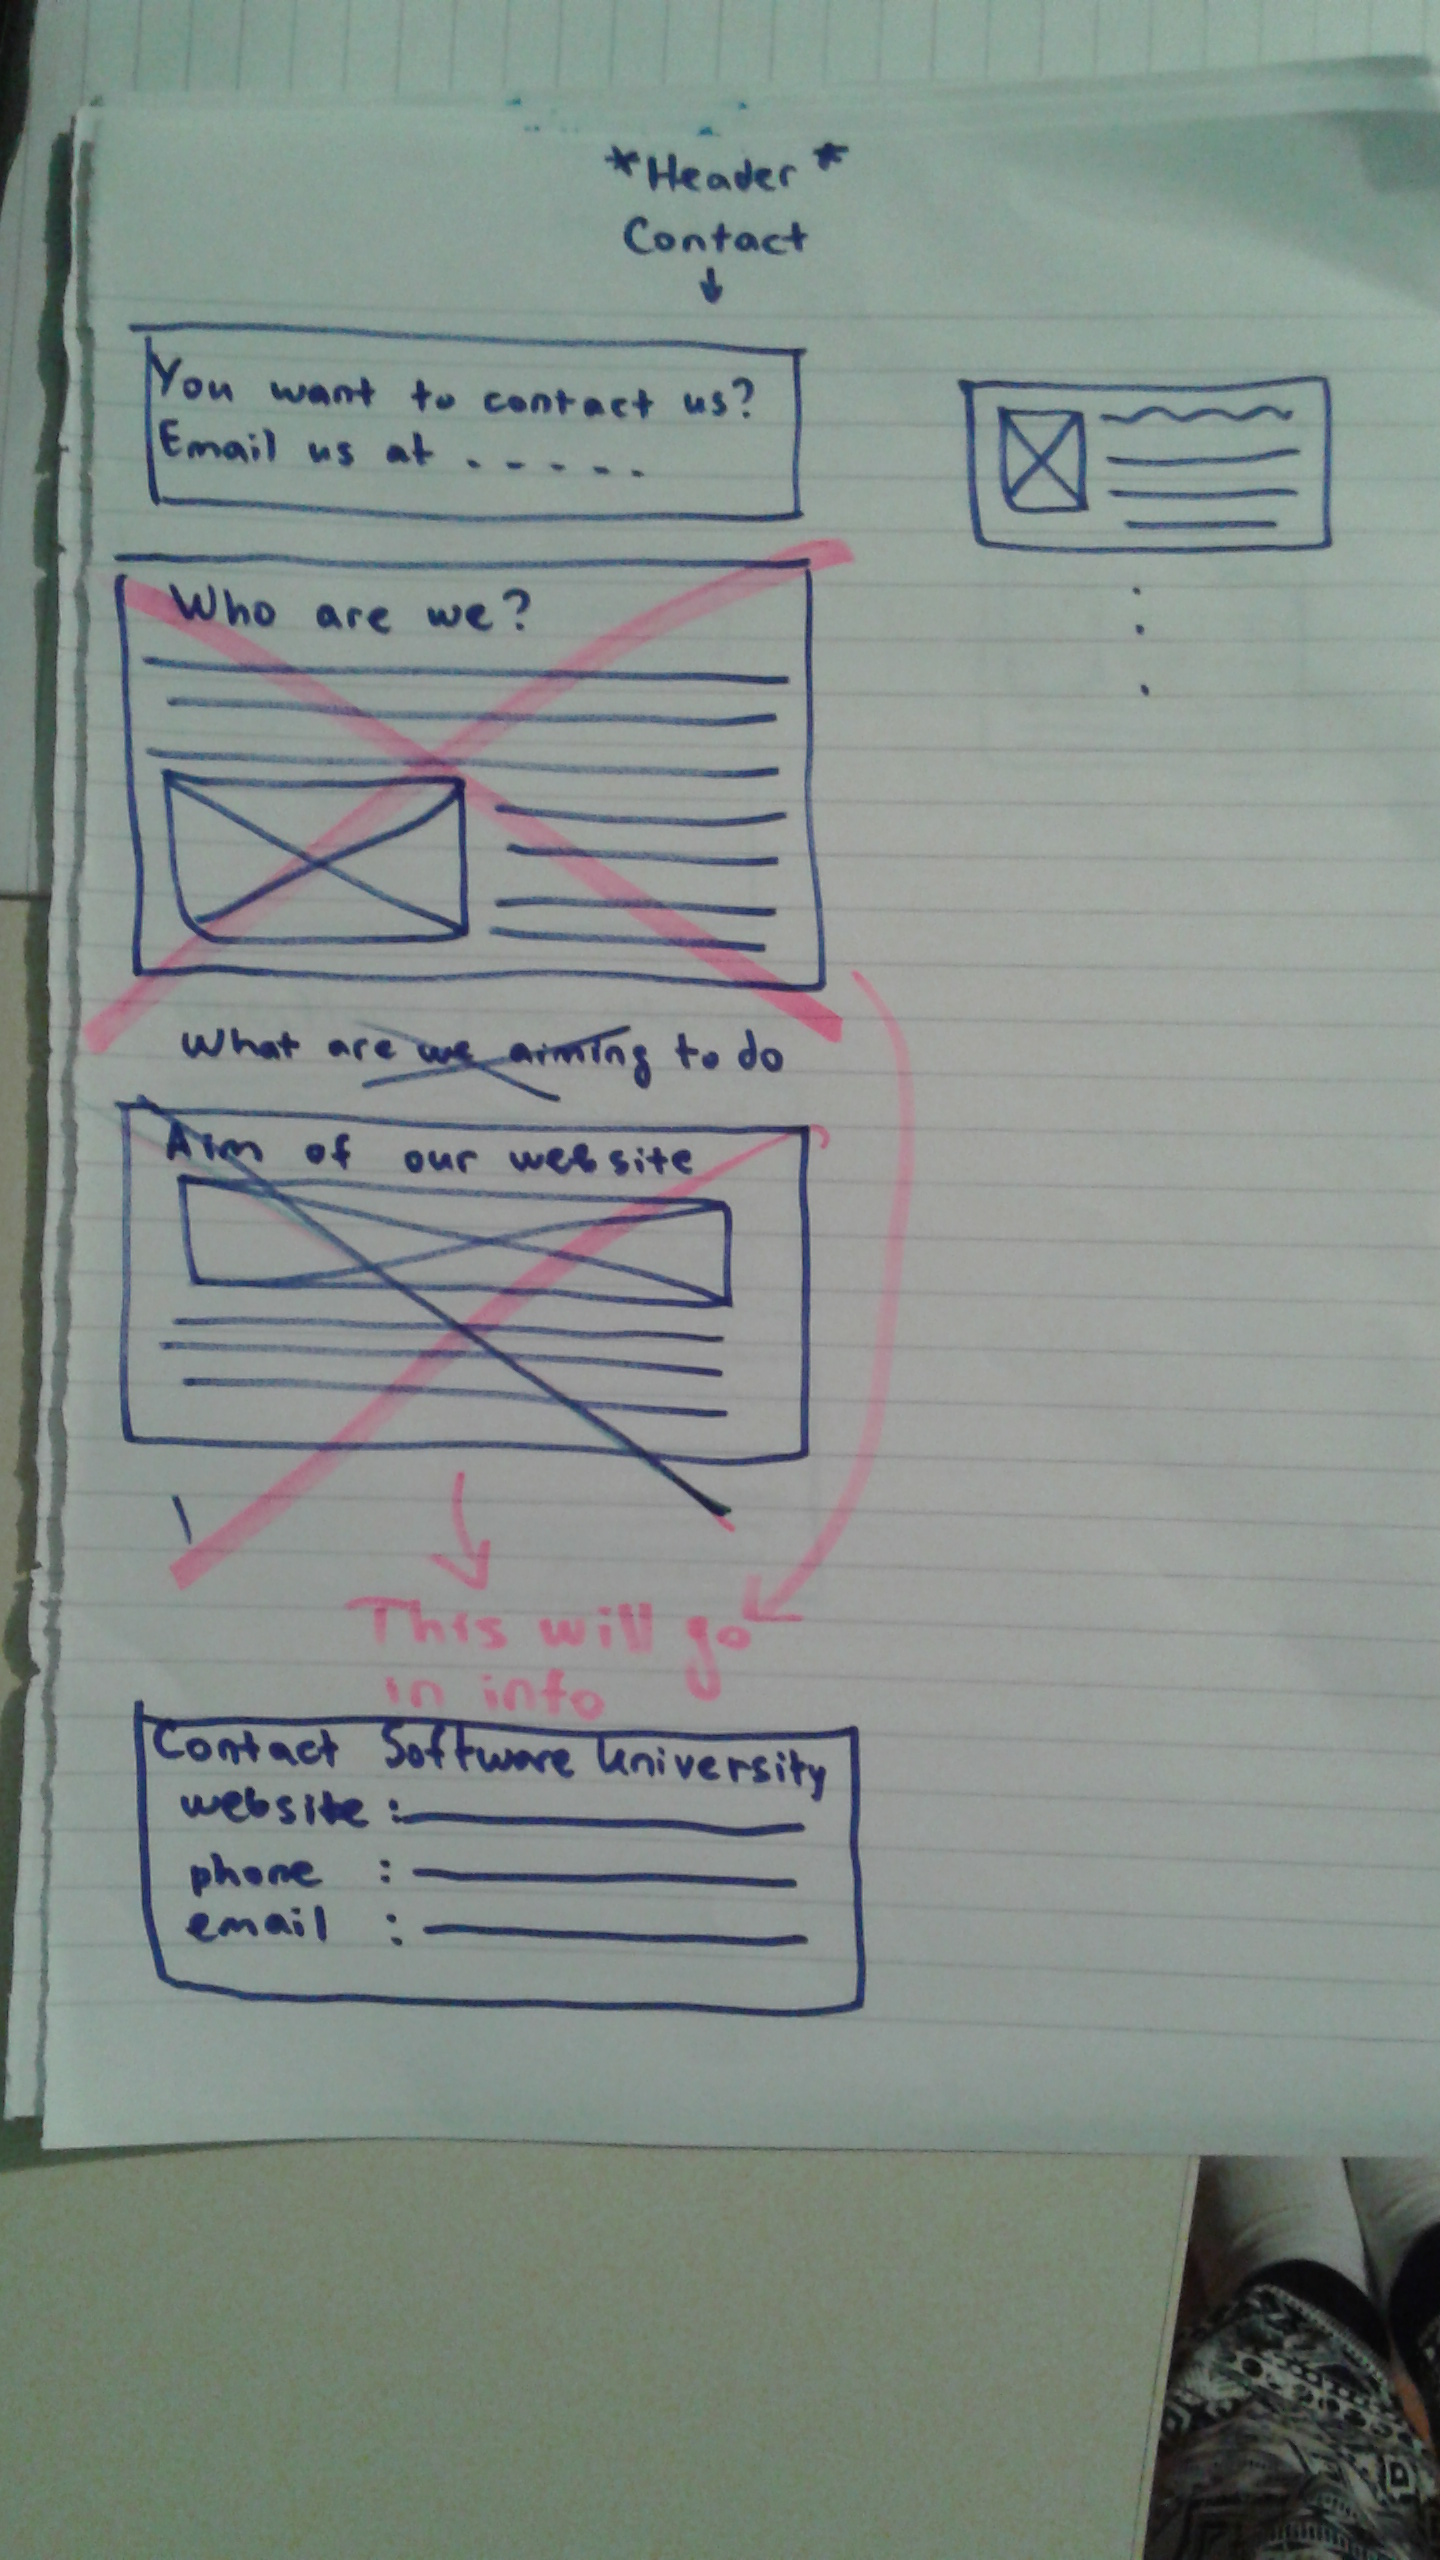 *Header*
Contact
You want to contact us?
Email us at . - - - .
Who are we?
What are we aiming to do
Aim of our website
This will go
in info
Contact Software University
website :
phone :
email :